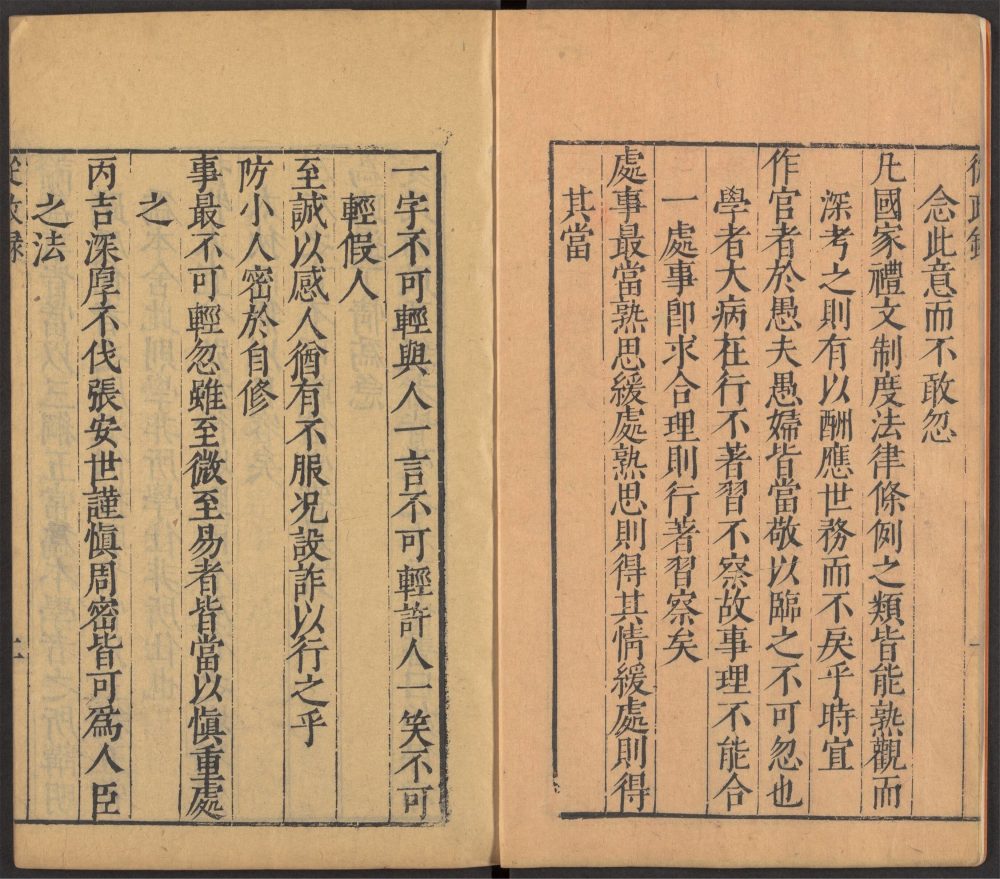 從政錄
念此意而不敢忽
凡國家禮文制度法律條例之類皆能熟觀而
深考之則有以酬應世務而不戾乎時宜
作官者於愚夫愚婦皆當敬以臨之不可忽也
學者大病在行不著習不察故事理不能合
一處事即求合理則行著習察矣
處事最當熟思緩處熟思則得其情緩處則得
其當
一字不可輕與人一言不可輕許人一笑不可
輕假人
至誠以感人猶有不服况設詐以行之乎
防小人密於自修
事最不可輕忽雖至微至易者皆當以慎重處
之
丙吉深厚不伐張安世謹慎周密皆可爲人臣
之法
從政錄
二